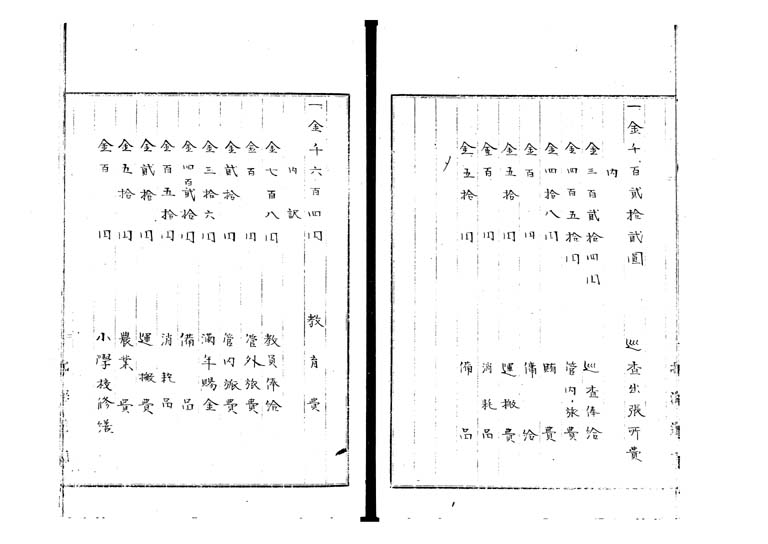 一金千百貳拾貳圓 巡査出張所費
内
金三百貳拾四円 巡査俸給
金四百五拾円 管内旅費
金四拾八円 賄費
金百円 傭給
金五拾円 運搬費
金百円 消耗品
金五拾円 備品
一金千六百四円 教育費
内訳
金七百八円 教員俸給
金百円 管外旅費
金貳拾円 管内旅費
金三拾六円 満年賜金
金四百貳拾円 備品
金百五拾円 消耗品
金貳拾円 運搬費
金五拾円 農業費
金百円 小學校修繕